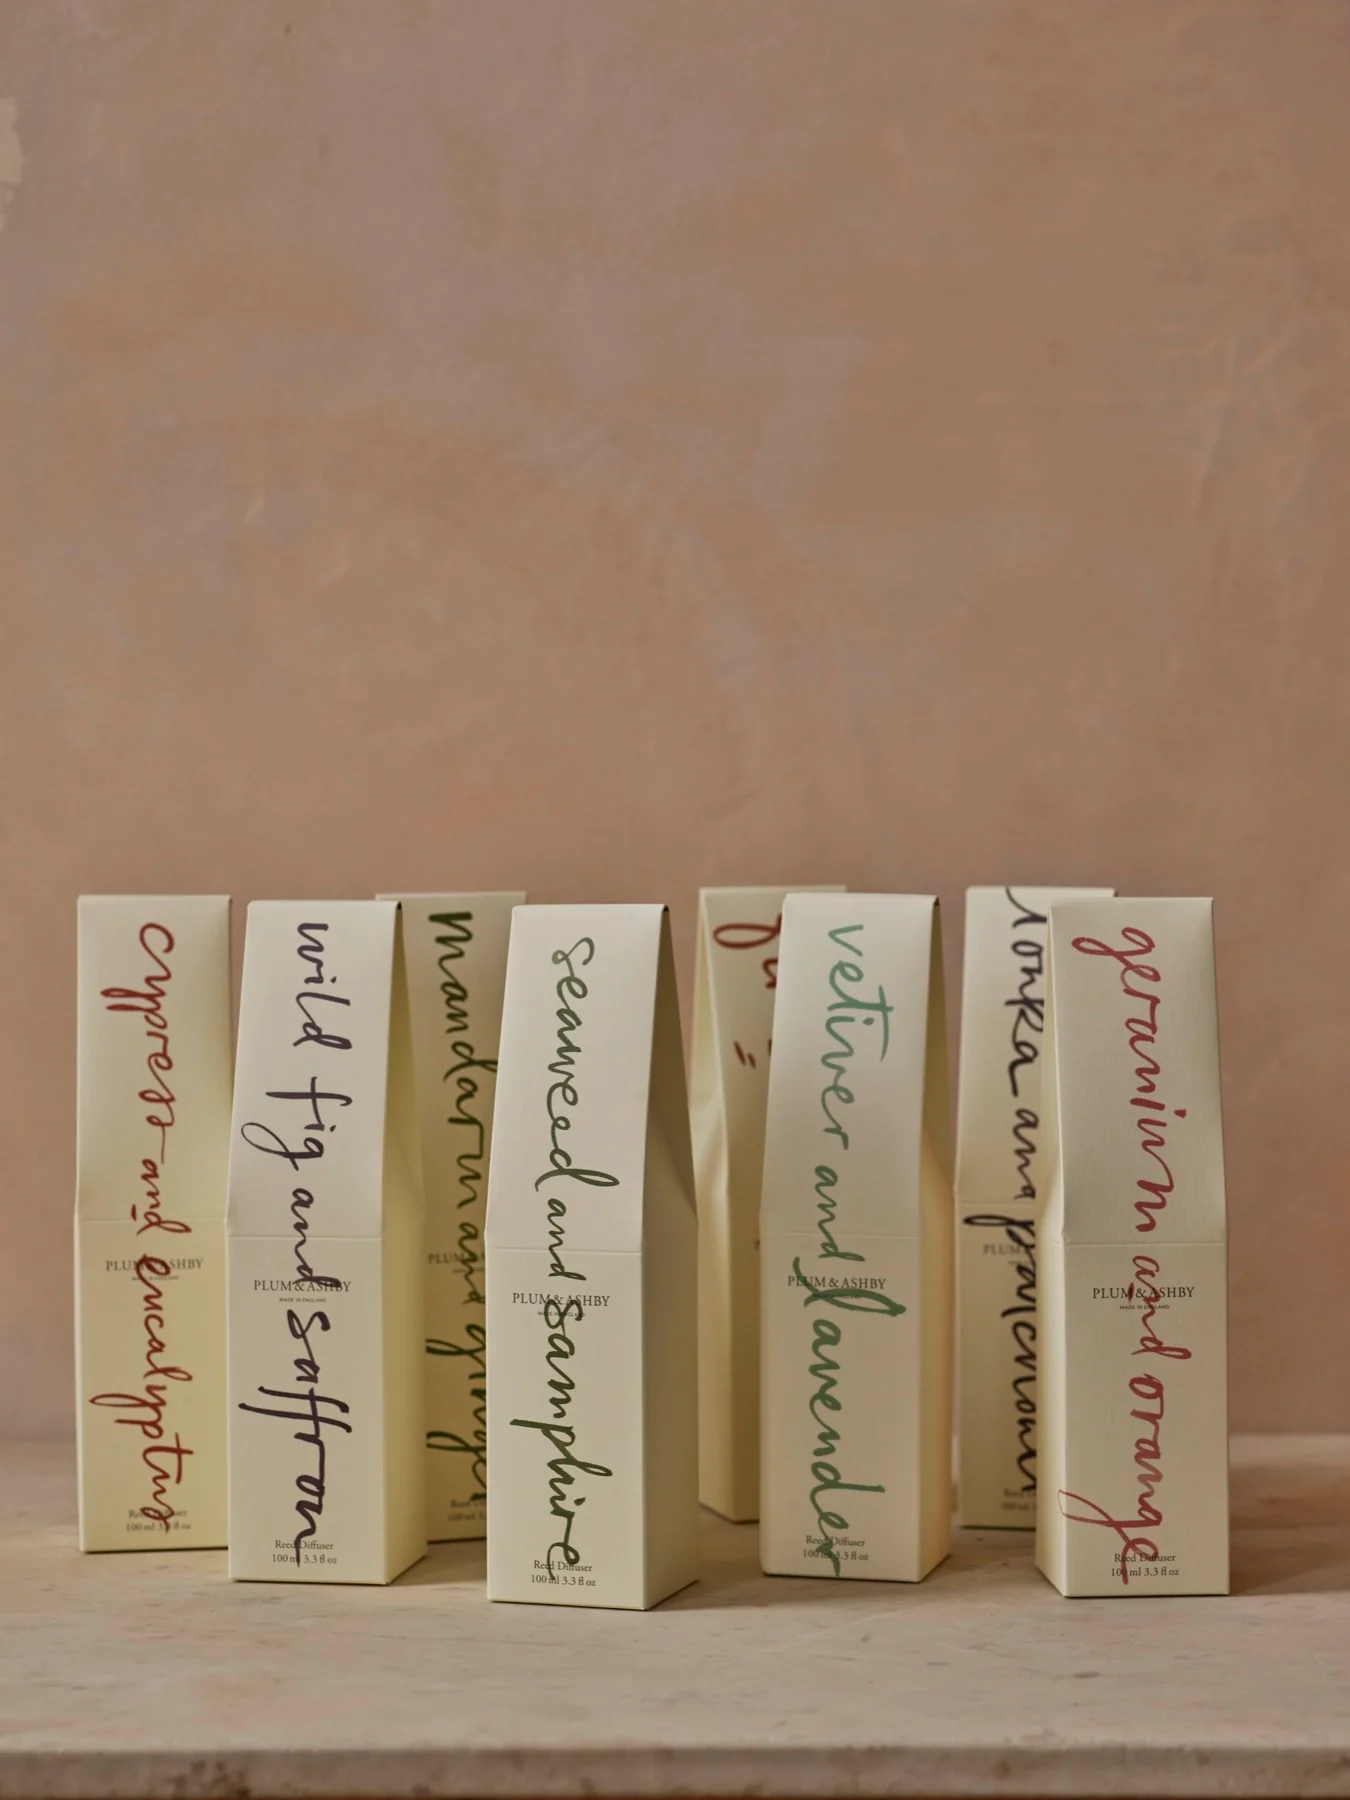 cypress and eucalyptus
PLUM & ASHBY
MADE IN ENGLAND
Reed Diffuser
100 ml 3.3 fl oz
wild fig and saffron
PLUM & ASHBY
MADE IN ENGLAND
Reed Diffuser
100 ml 3.3 fl oz
mandarin and ginger
PLUM &
seaweed and samphire
PLUM & ASHBY
MADE IN ENGLAND
Reed Diffuser
100 ml 3.3 fl oz
vetiver and lavender
PLUM & ASHBY
Reed Diffuser
100 ml 3.3 fl oz
tonka and
PLUM
geranium and orange
PLUM & ASHBY
MADE IN ENGLAND
Reed Diffuser
100 ml 3.3 fl oz